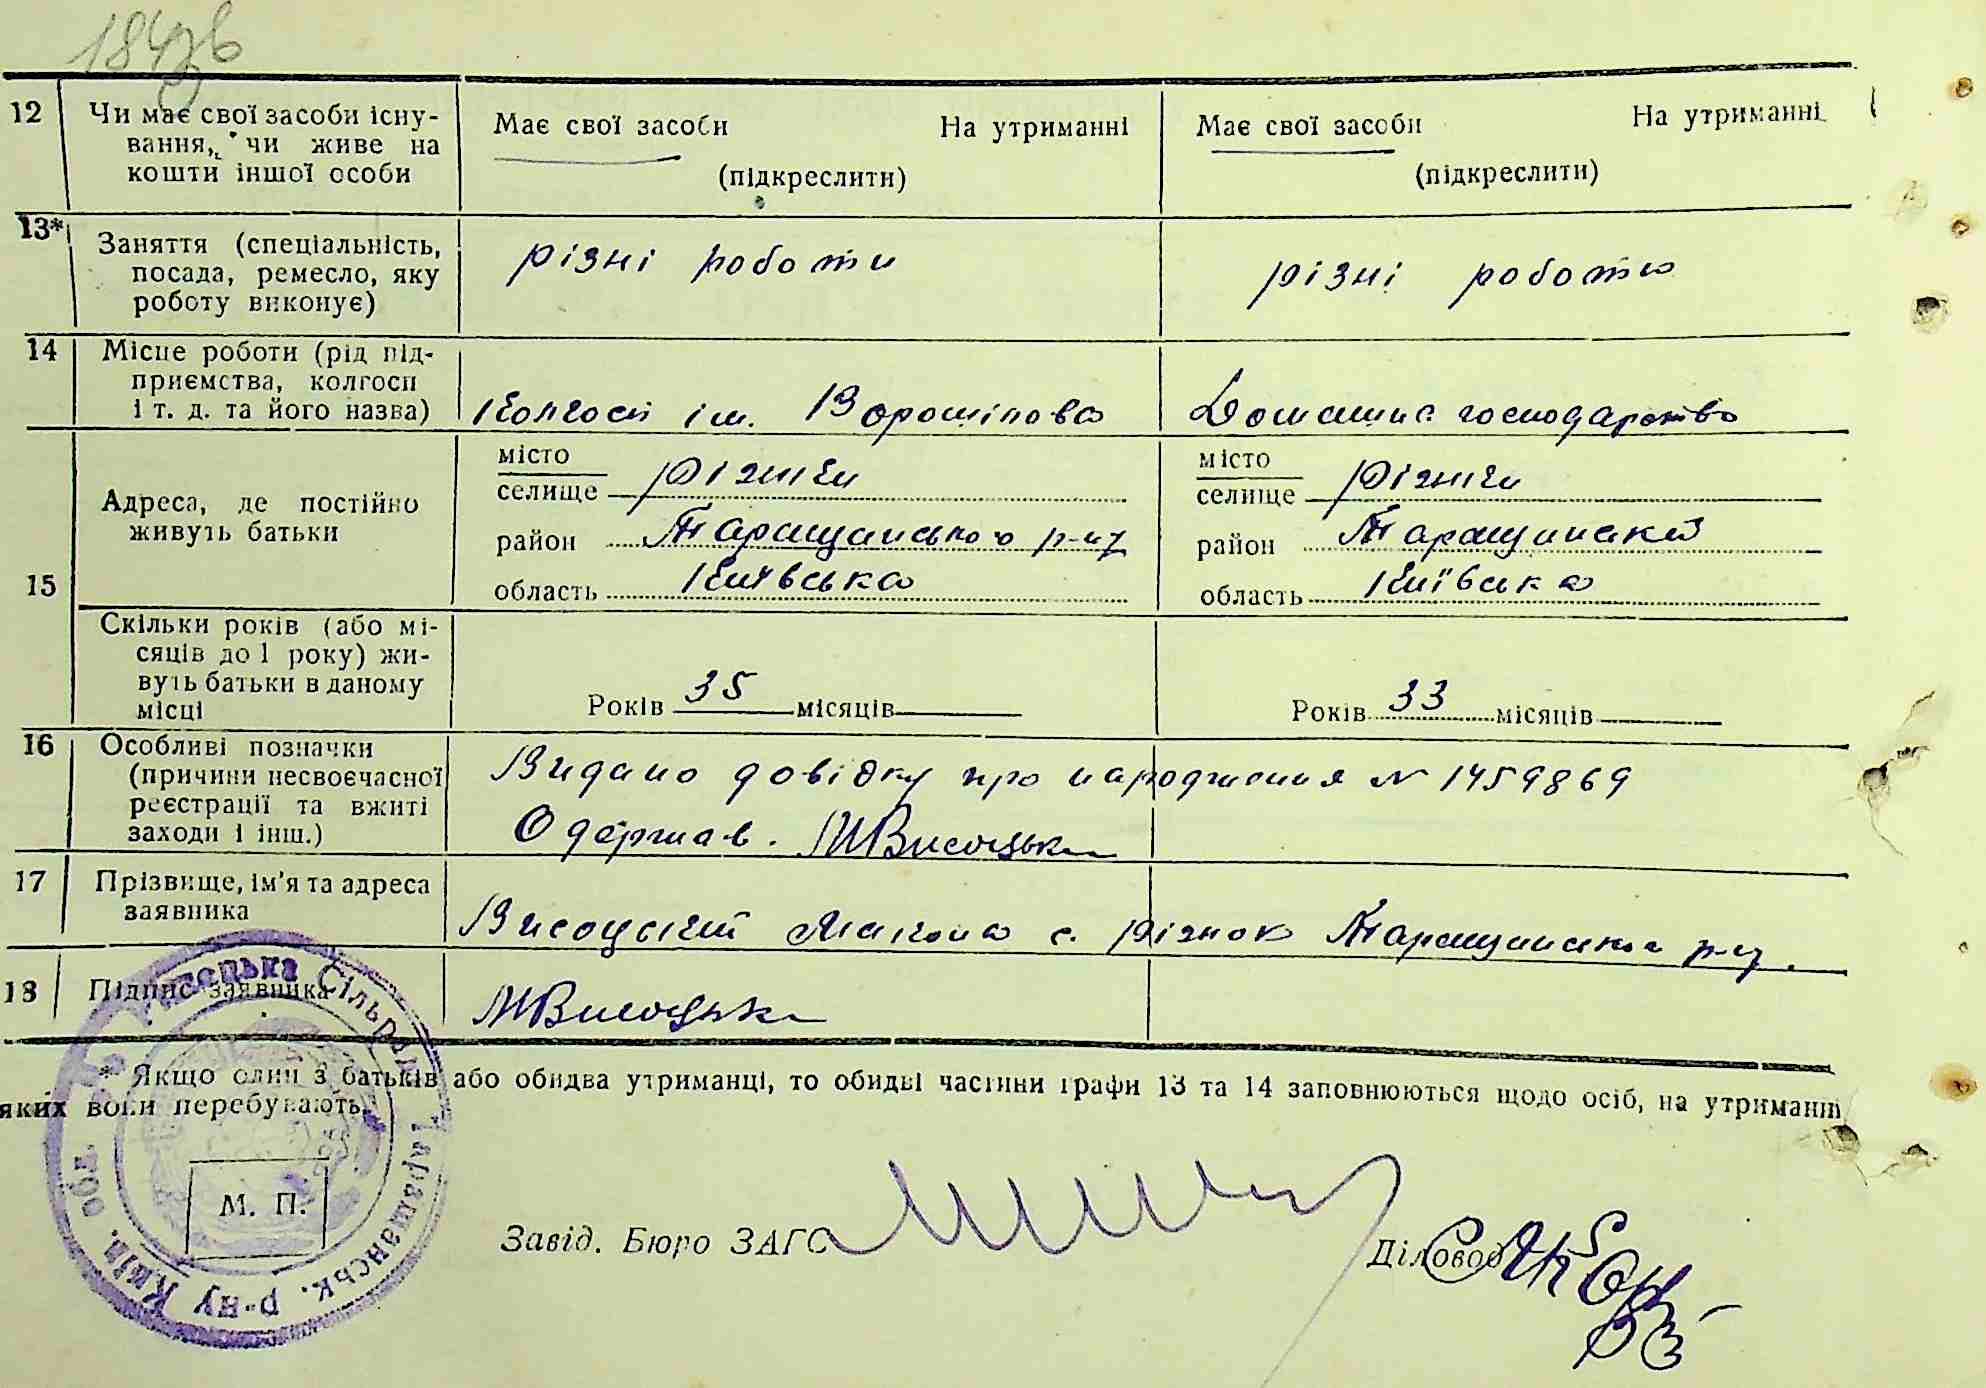 184зв
12 Чи має свої засоби існу-
вання, чи живе на
кошти іншої особи
Має свої засоби На утриманні
(підкреслити)
Має свої засоби На утриманні
(підкреслити)
13* Заняття (спеціальність,
посада, ремесло, яку
роботу виконує)
різні роботи
різні роботи
14 Місце роботи (рід під-
приємства, колгосп
і т. д. та його назва)
Колгосп ім. Ворошілова
Домашнє господарство
15
Адреса, де постійно
живуть батьки
місто
селище Ріжки
район Таращанського р-ну
область Київська
місто
селище Ріжки
район Таращанский
область Київська
Скільки років (або мі-
сяців до 1 року) жи-
вуть батьки в даному
місці
Років 35 місяців
Років 33 місяців
16 Особливі позначки
(причини несвоєчасної
реєстрації та вжиті
заходи і інш.)
Видано довідку про народження № 1459869
Одержав. МВисоцька
17 Прізвище, ім'я та адреса
заявника
Висоцький с. Ріжок Таращанського р-ну.
18 Підпис заявника
МВисоцька
* Якщо один з батьків або обидва утриманці, то обидві частини графи 13 та 14 заповнюються щодо осіб, на утриманні
яких вони перебувають.
Сільрада Таращанськ. р-ну Київ. обл.
М. П.
Завід. Бюро ЗАГС
Діловод